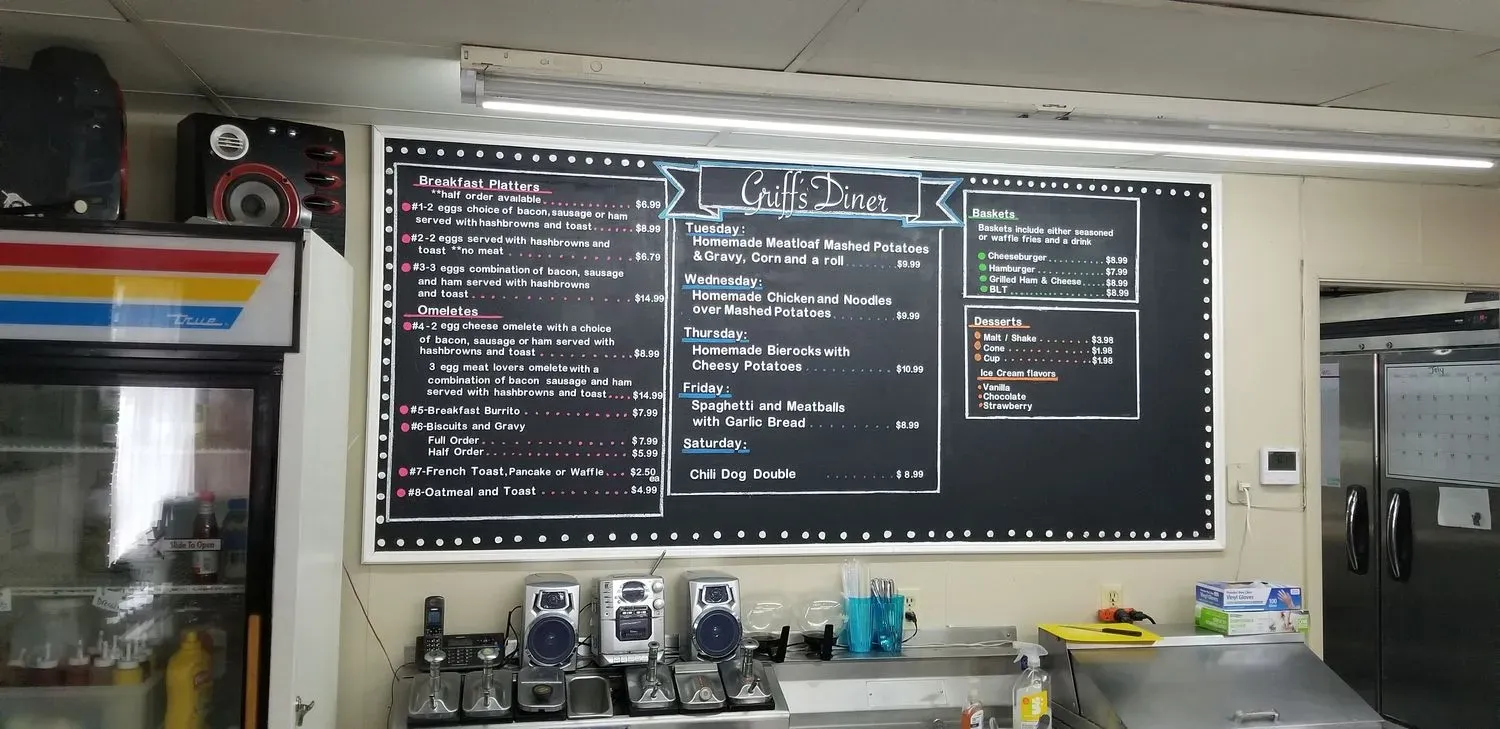 Griff's Diner
Breakfast Platters
**half order available . . . . . . . . . . . . . $6.99
#1-2 eggs choice of bacon, sausage or ham
served with hashbrowns and toast . . . . . . $8.99
#2-2 eggs served with hashbrowns and
toast **no meat . . . . . . . . . . . . . . . $6.79
#3-3 eggs combination of bacon, sausage
and ham served with hashbrowns
and toast . . . . . . . . . . . . . . . $14.99
Omeletes
#4-2 egg cheese omelete with a choice
of bacon, sausage or ham served with
hashbrowns and toast . . . . . . . . . . $8.99
3 egg meat lovers omelete with a
combination of bacon sausage and ham
served with hashbrowns and toast . . . . $14.99
#5-Breakfast Burrito . . . . . . . . . . $7.99
#6-Biscuits and Gravy
Full Order . . . . . . . . . . . . . . $7.99
Half Order . . . . . . . . . . . . . . $5.99
#7-French Toast, Pancake or Waffle . . . $2.50
ea
#8-Oatmeal and Toast . . . . . . . . . $4.99
Tuesday:
Homemade Meatloaf Mashed Potatoes
& Gravy, Corn and a roll . . . . . . . $9.99
Wednesday:
Homemade Chicken and Noodles
over Mashed Potatoes . . . . . . . . $9.99
Thursday:
Homemade Bierocks with
Cheesy Potatoes . . . . . . . . . . . $10.99
Friday:
Spaghetti and Meatballs
with Garlic Bread . . . . . . . . . . $8.99
Saturday:
Chili Dog Double . . . . . . . . $8.99
Baskets
Baskets include either seasoned
or waffle fries and a drink
Cheeseburger . . . . . . . . . . $8.99
Hamburger . . . . . . . . . . . $7.99
Grilled Ham & Cheese . . . . . $8.99
BLT . . . . . . . . . . . . . . $8.99
Desserts
Malt / Shake . . . . . . . . . . $3.98
Cone . . . . . . . . . . . . . . $1.98
Cup . . . . . . . . . . . . . . $1.98
Ice Cream flavors
Vanilla
Chocolate
Strawberry
True
Slide To Open
July
Vinyl Gloves
100